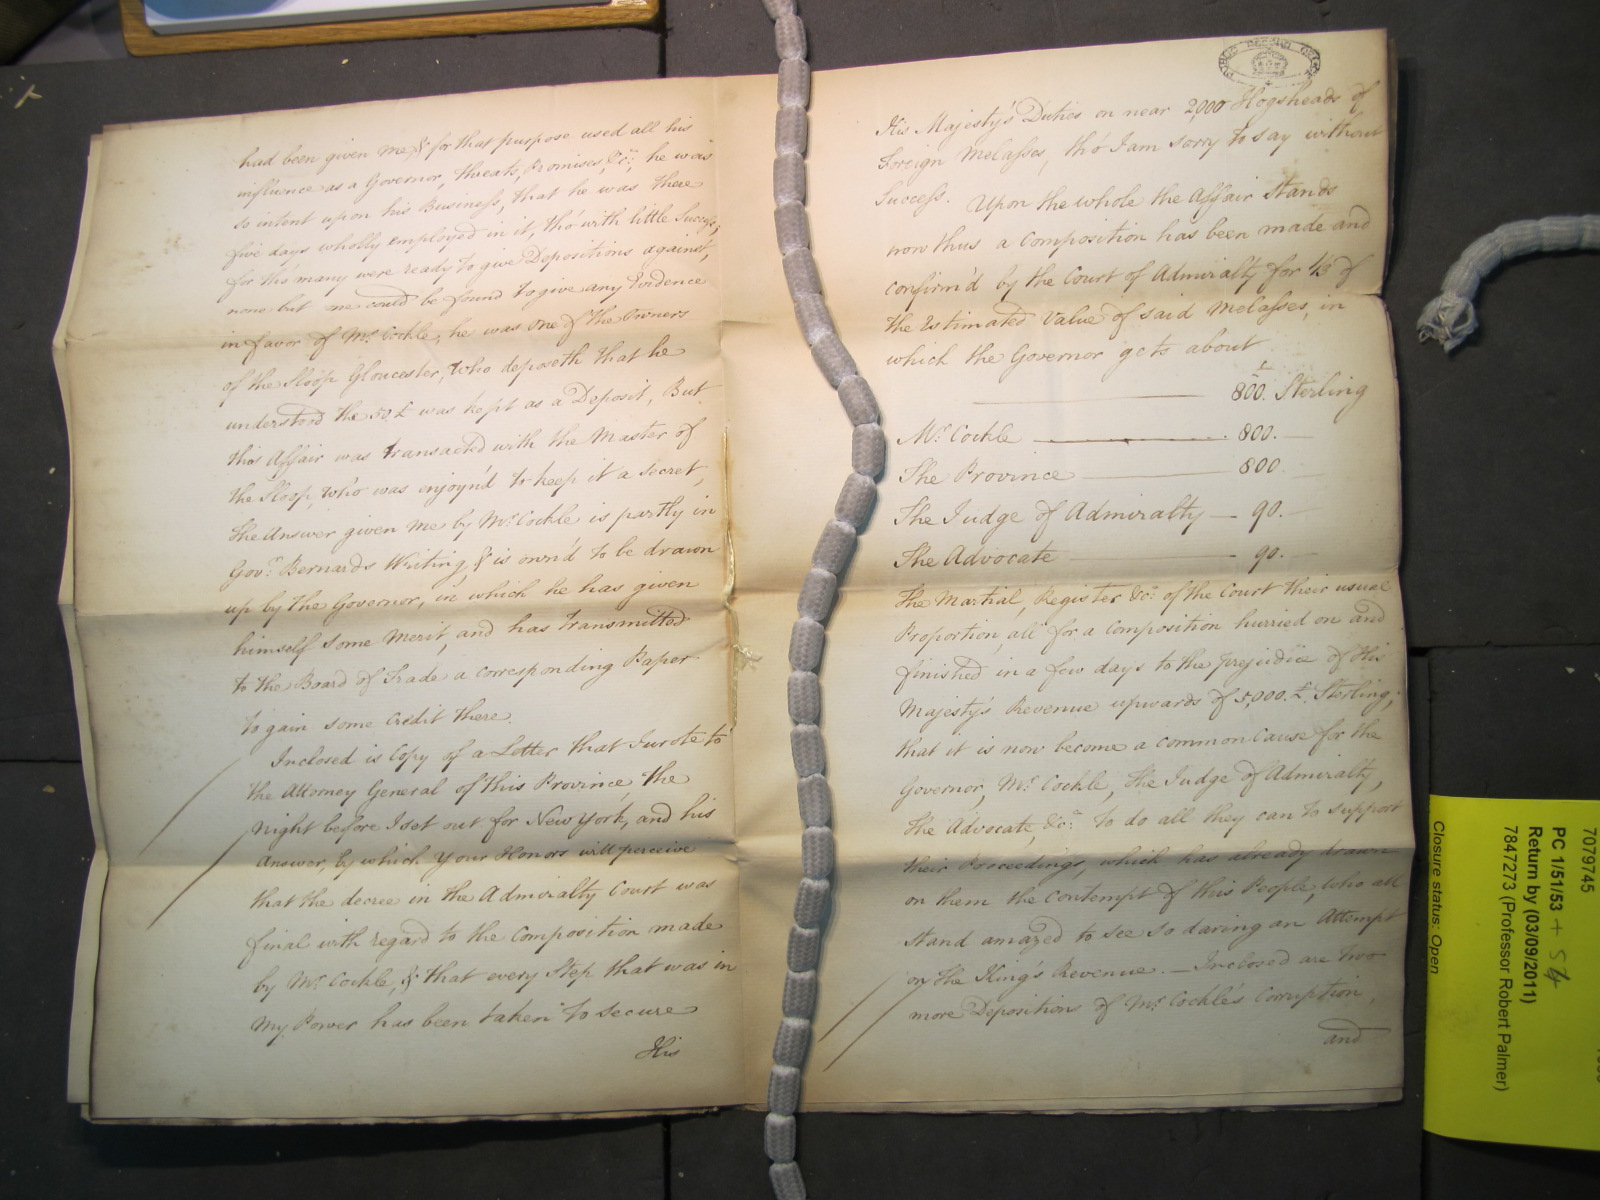 had been given me, & for that purpose used all his
influence as a Governor, threats, Promises, &c.a; he was
so intent upon his Business, that he was there
five days wholly employed in it, tho' with little Success,
for tho' many were ready to give Depositions against,
none but one could be found to give any Evidence
in favor of Mr. Cockle, he was one of the Owners
of the Sloop Gloucester, who deposeth that he
understood the 50 £ was kept as a Deposit, But
this Affair was transacted with the Master of
the Sloop, who was enjoyn'd to keep it a secret,
The Answer given me by Mr. Cockle is partly in
Gov.r Bernards Writing, & is own'd to be drawn
up by the Governor, in which he has given
himself some Merit, and has transmitted
to the Board of Trade a corresponding Paper
to gain some Credit there.
Inclosed is Copy of a Letter that I wrote to
the Attorney General of this Province, the
night before I set out for New York, and his
Answer, by which your Honors will perceive
that the decree in the Admiralty Court was
final with regard to the Composition made
by Mr. Cockle, & that every Step that was in
my Power has been taken to secure
His
PUBLIC RECORD OFFICE
His Majesty's Duties on near 2,000 Hogsheads of
Foreign Melasses, tho' I am sorry to say without
Success. Upon the whole the Affair stands
now thus a Composition has been made and
confirm'd by the Court of Admiralty for 1/3 of
the Estimated Value of said Melasses, in
which the Governor gets about
£
800. Sterling
Mr. Cockle 800.
The Province 800
The Judge of Admiralty 90.
The Advocate 90.
The Martial, Register &c.a of the Court their usual
Proportion, all for a Composition hurried on and
finished in a few days to the prejudice of His
Majesty's Revenue upwards of 5,000.£ Sterling;
that it is now become a common Cause for the
Governor, Mr. Cockle, the Judge of Admiralty,
the Advocate, &c.a to do all they can to support
their Proceedings, which has already drawn
on them the Contempt of this People, who all
stand amazed to see so daring an Attempt
on the King's Revenue. — Inclosed are two
more Depositions of Mr. Cockle's Corruption,
and
7079745
PC 1/51/53 + 54
Return by (03/09/2011)
7847273 (Professor Robert Palmer)
Closure status: Open